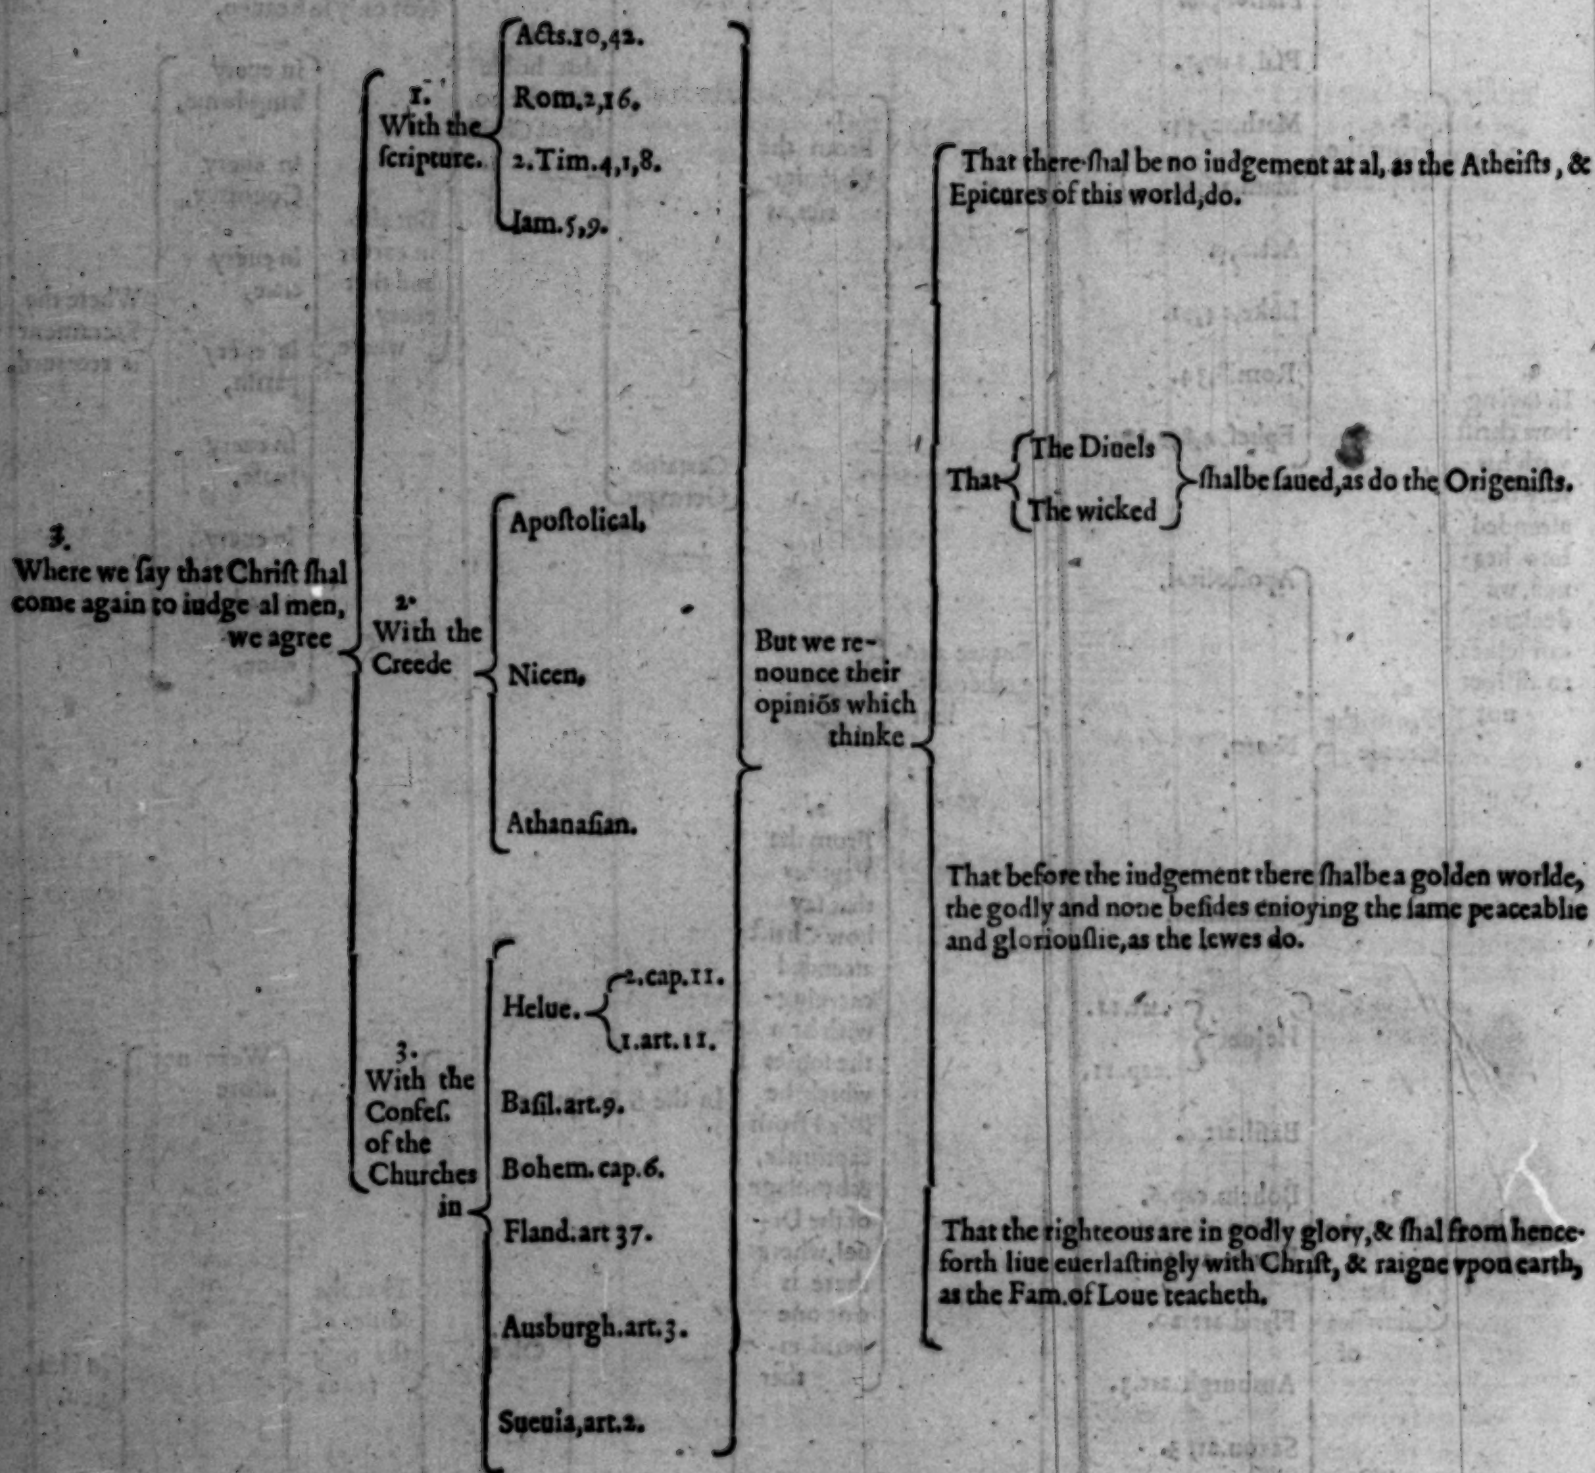 3.
Where we ſay that Chriſt ſhal
come again to iudge al men,
we agree
1.
With the
ſcripture.
Acts.10,42.
Rom.2,16.
2.Tim.4,1,8.
Iam.5,9.
2.
With the
Creede
Apoſtolical,
Nicen,
Athanaſian.
3.
With the
Confeſ.
of the
Churches
in
Helue.
2.cap.11.
1.art.11.
Baſil.art.9.
Bohem.cap.6.
Fland.art 37.
Ausburgh.art.3.
Sueuia,art.2.
But we re-
nounce their
opiniõs which
thinke
That there ſhal be no iudgement at al, as the Atheiſts, &
Epicures of this world,do.
That
The Diuels
The wicked
ſhalbe ſaued,as do the Origeniſts.
That before the iudgement there ſhalbe a golden worlde,
the godly and none beſides enioying the ſame peaceablie
and gloriouſlie,as the Iewes do.
That the righteous are in godly glory,& ſhal from hence-
forth liue euerlaſtingly with Chriſt, & raigne vpon earth,
as the Fam.of Loue teacheth.